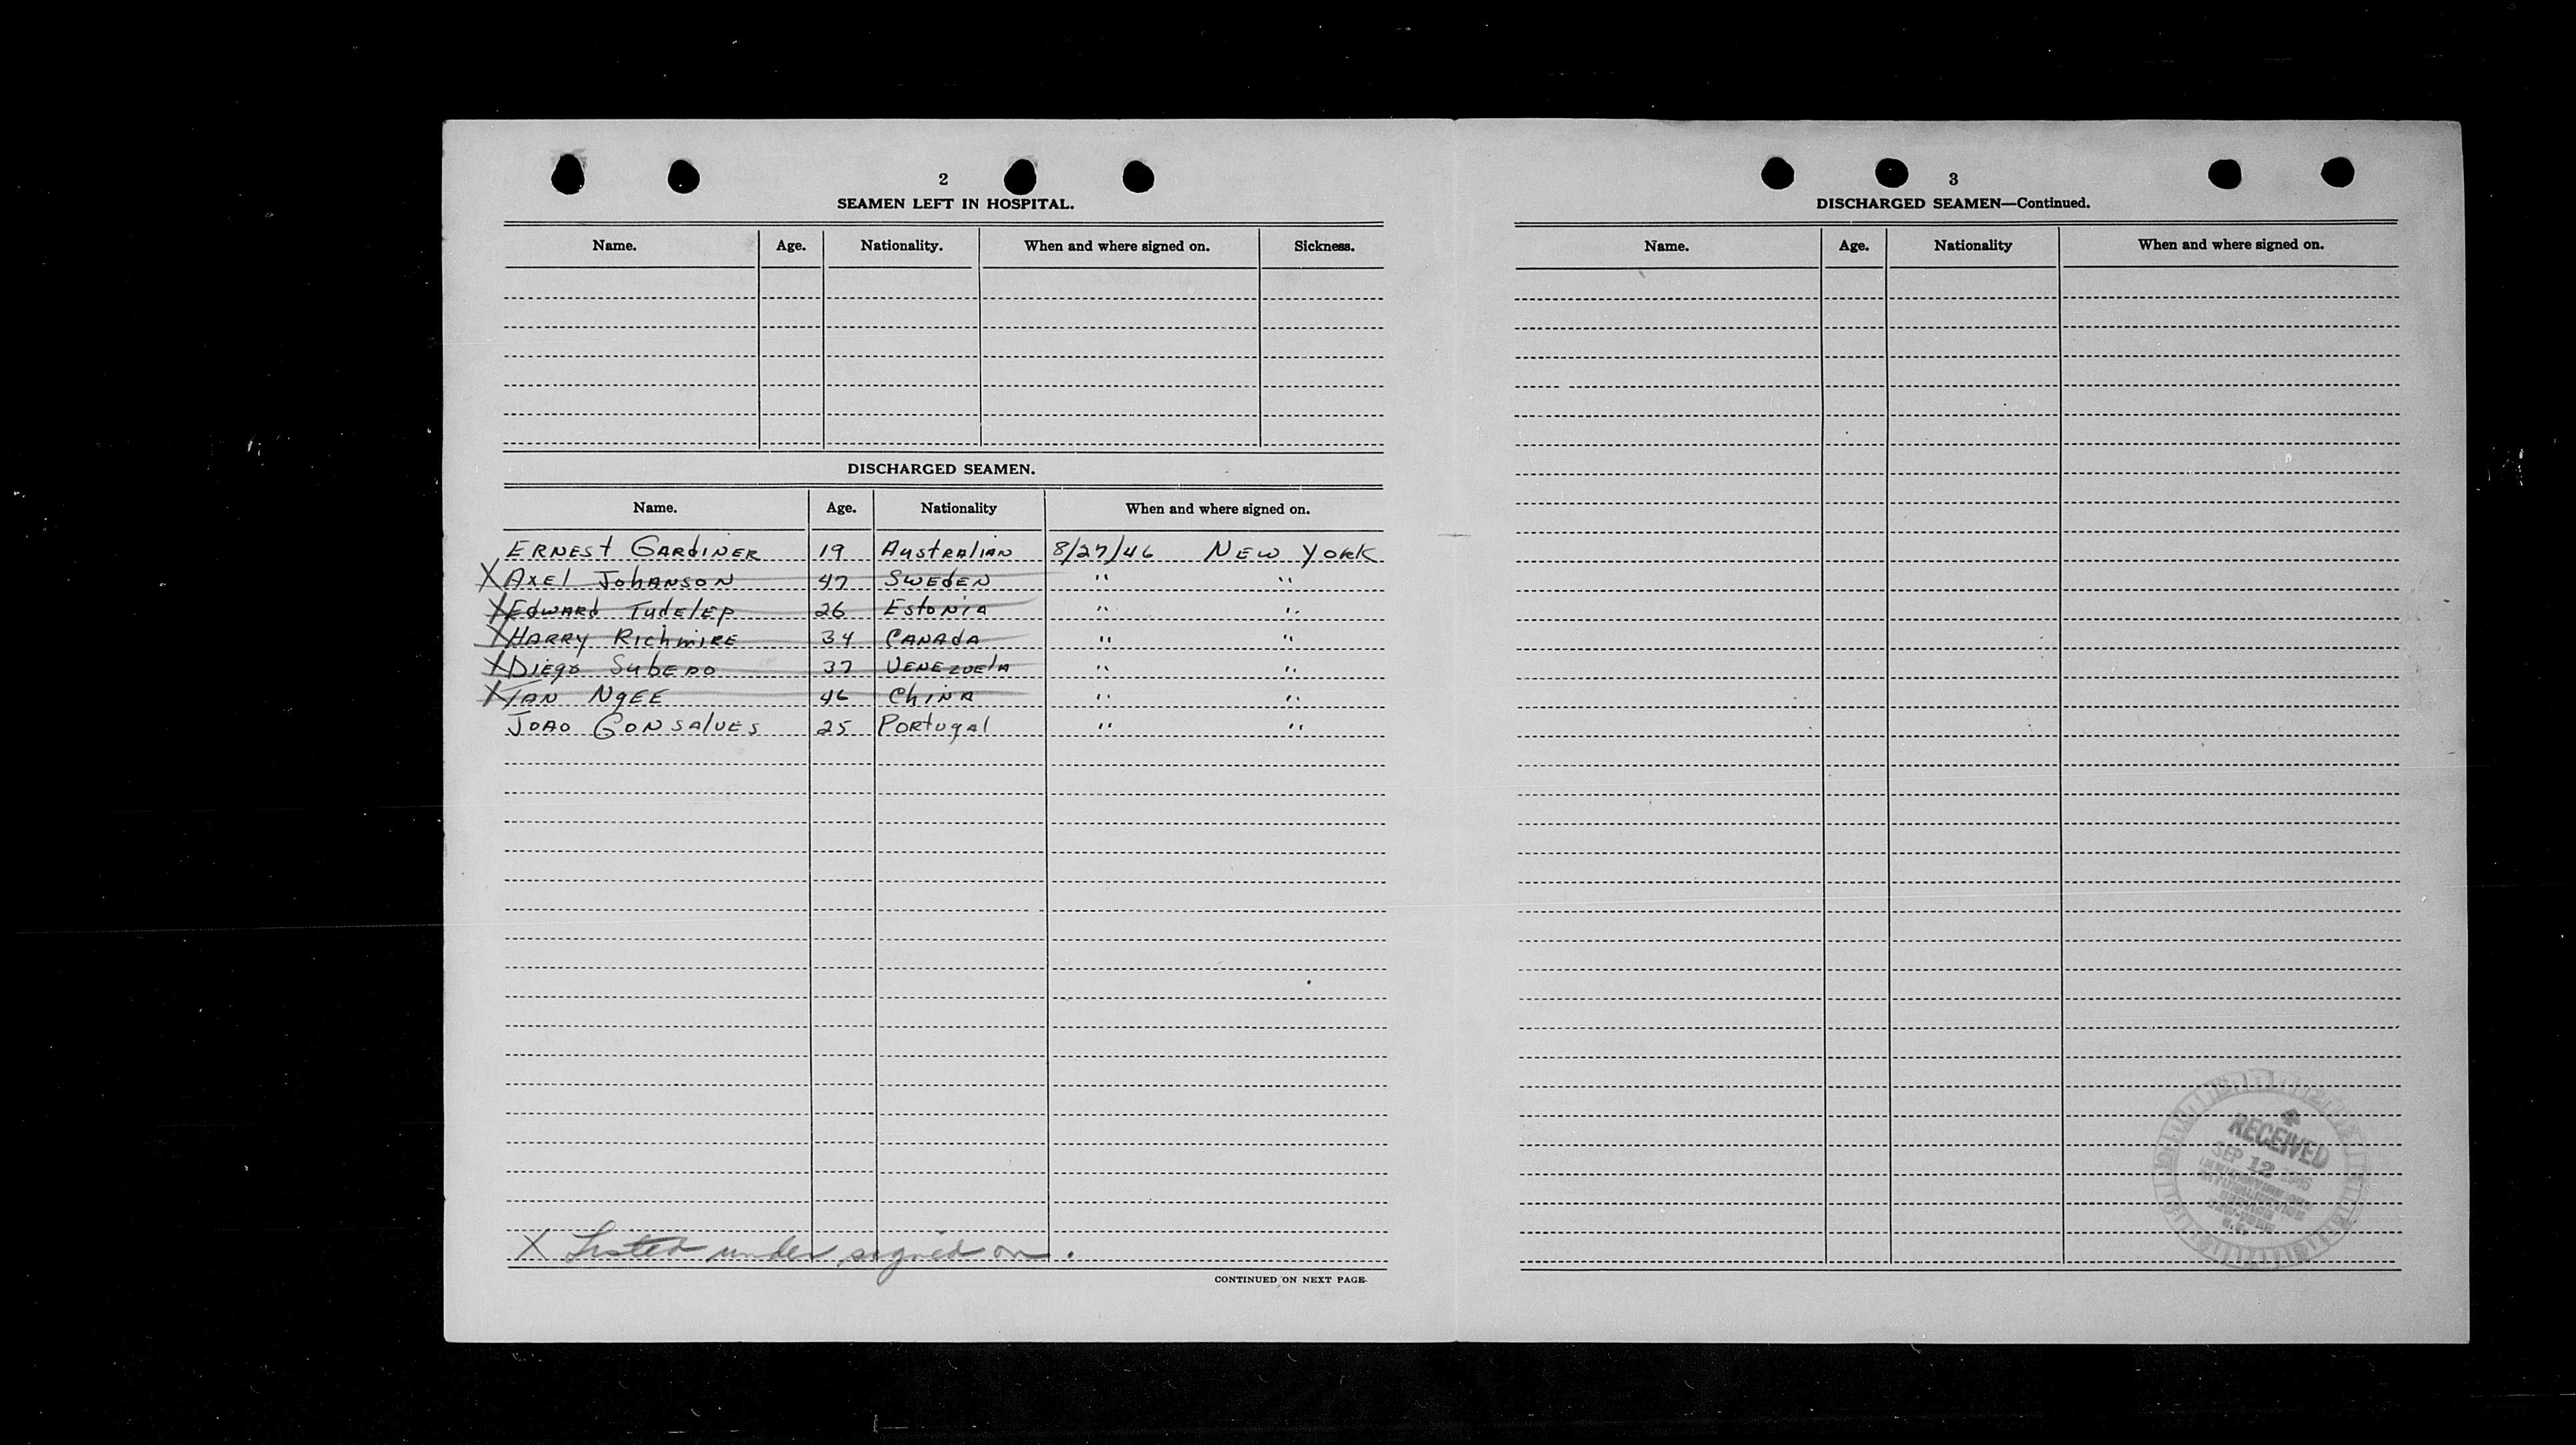 2
SEAMEN LEFT IN HOSPITAL.
Name. Age. Nationality. When and where signed on. Sickness.
DISCHARGED SEAMEN.
Name. Age. Nationality When and where signed on.
ERNEST GARDINER 19 AUSTRALIAN 8/27/46 NEW YORK
X AXEL JOHANSON 47 SWEDEN " "
X EDWARD TUDELEP 26 ESTONIA " "
X HARRY RICHMIRE 34 CANADA " "
X DIEGO SUBERO 37 VENEZUELA " "
X TAN NGEE 46 CHINA " "
JOAO GONSALVES 25 PORTUGAL " "
X Listed under signed on.
CONTINUED ON NEXT PAGE.
3
DISCHARGED SEAMEN—Continued.
Name. Age. Nationality When and where signed on.
RECEIVED
SEP 12 1946